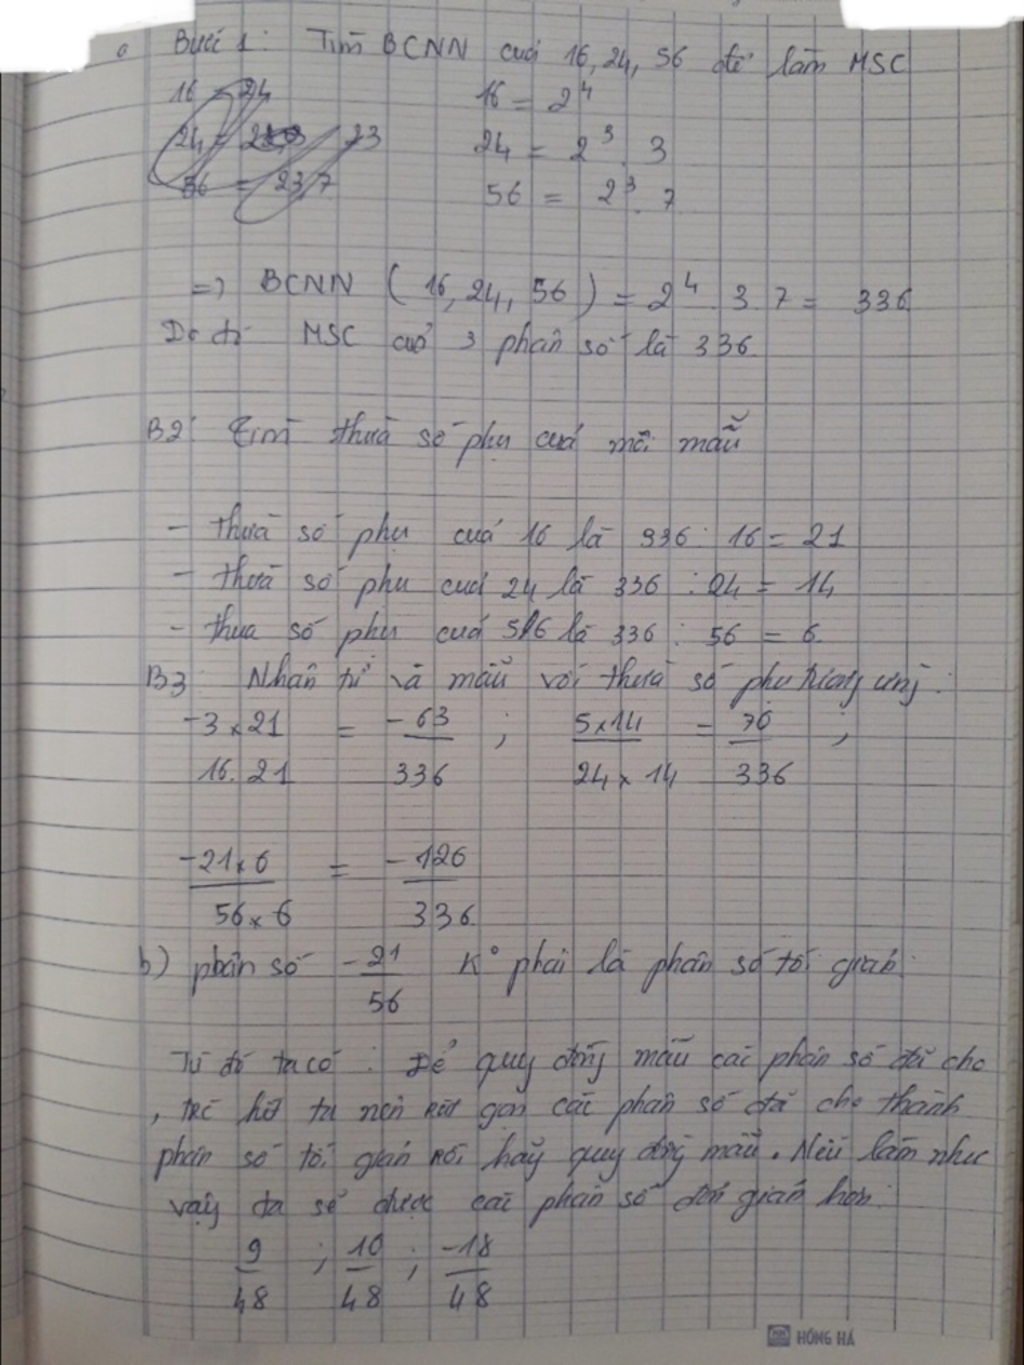 a Bước 1: Tìm BCNN của 16, 24, 56 để làm MSC
16 = 24
16 = 2^4
24 = 23
24 = 2^3 . 3
56 = 23,7
56 = 2^3 . 7
=> BCNN (16, 24, 56) = 2^4 . 3 . 7 = 336
Do đó MSC của 3 phân số là 336.
B2: Tìm thừa số phụ của mỗi mẫu
- Thừa số phụ của 16 là 336 : 16 = 21
- thừa số phụ của 24 là 336 : 24 = 14
- thừa số phụ của 56 là 336 : 56 = 6.
B3: Nhân tử và mẫu với thừa số phụ tương ứng:
-3 x 21 / 16 . 21 = -63 / 336 ; 5 x 14 / 24 x 14 = 70 / 336 ;
-21 x 6 / 56 x 6 = -126 / 336
b) phân số -21 / 56 K° phải là phân số tối giản.
Từ đó ta có : Để quy đồng mẫu các phân số đã cho
, trc hết ta nên rút gọn các phân số đã cho thành
phân số tối giản rồi hãy quy đồng mẫu. Nếu làm như
vậy ta sẽ được các phân số đơn giản hơn:
9 / 48 ; 10 / 48 ; -18 / 48
HỒNG HÀ